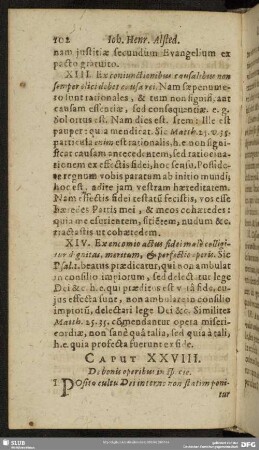 102 Ioh. Henr. Alsted.
nam justitiæ secundum Evangelium ex
pacto gratuito.
XIII. Ex coniunctionibus causalibus non
semper elici debet causa rei. Nam sæpenume-
ro sunt rationales, & tum non signifi. aut
causam essentiæ, sed consequentiæ. e. g.
Sol ortus est. Nam dies est. Item: Ille est
pauper: quia mendicat. Sic Matth. 25. v. 35.
particula enim est rationalis, h. e. non signi-
ficat causam antecedentem, sed ratiocina-
tionem ex effectis fidei, hoc sensu. Possido-
te regnum vobis paratum ab initio mundi,
hoc est. adite jam vestram hæreditatem.
Nam effectis fidei testati fecistis, vos esse
hæredes Patris mei, & meos cohæredes:
quia me esurientem, sitientem, nudum &c.
tractastis ut cohæredem.
XIV. Ex encomio actus fidei male colligi-
tur dignitas, meritum, & perfectio operis. Sic
Psal. 1. beatus prædicatur, qui non ambulat in
consilio impiorum, sed delectatur lege
Dei &c. h. e. qui præditus est viva fide, cu-
jus effecta sunt, non ambulare in consilio
impiorum, delectari lege Dei &c. Similiter
Matth. 25. 35. commendantur opera miseri-
cordiæ, non sane qua talia, sed quia à tali,
h. e. quia profecta fuerunt ex fide.
CAPUT XXVIII.
De bonis operibus in specie.
I. Posito cultu Dei interno non statim poni-
tur
SLUB
DFG